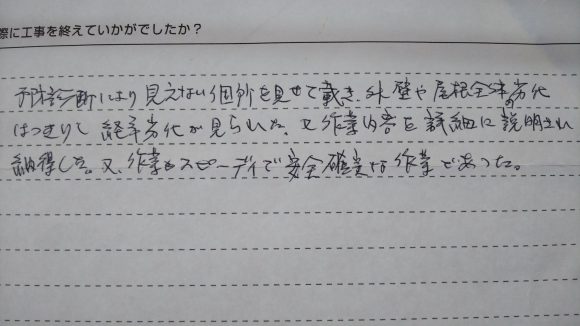 際に工事を終えていかがでしたか？
診断により見えない個所を見せて戴き、外壁や屋根全体の劣化
はっきりして経年劣化が見られた。又作業内容を詳細に説明され
納得した。又、作業もスピーディで安全確実な作業であった。